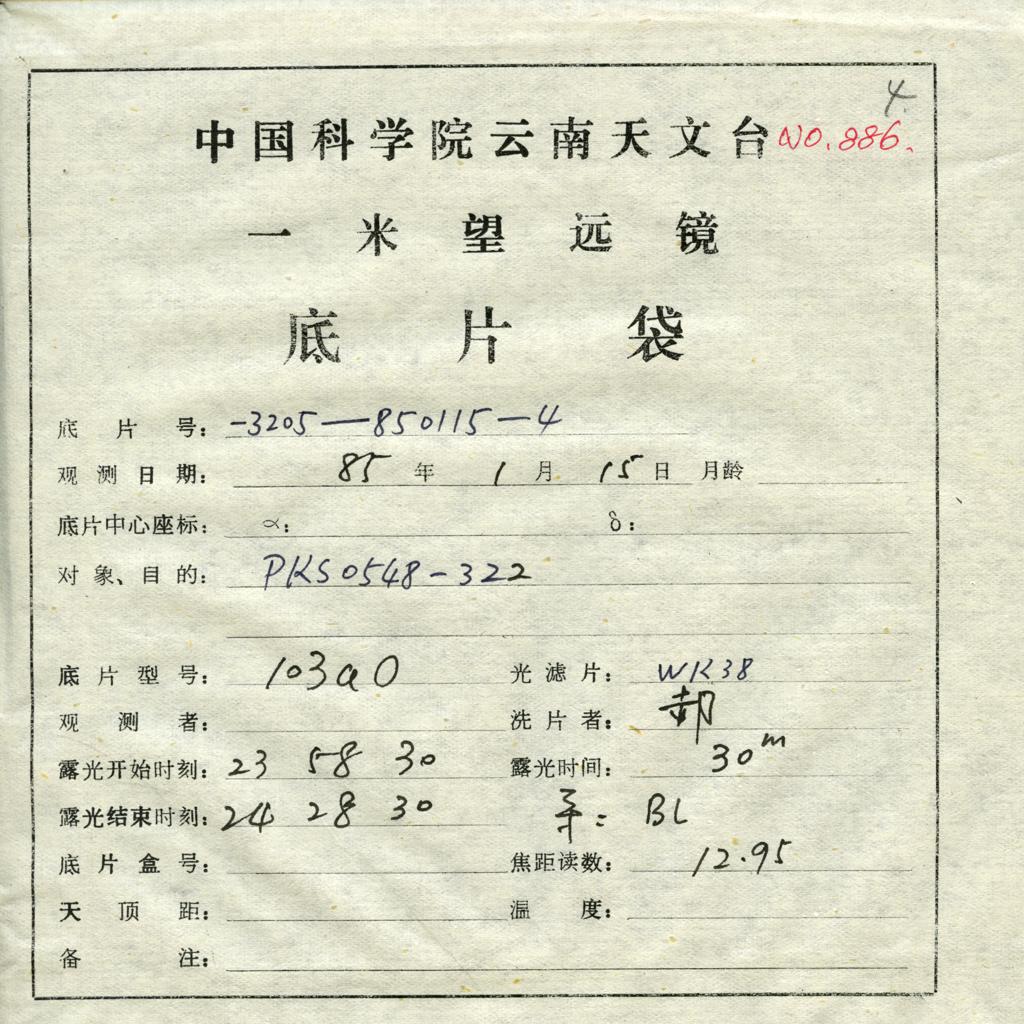 4
中国科学院云南天文台 NO.886.
一米望远镜
底片袋
底片号: -3205-850115-4
观测日期: 85年 1月 15日 月龄
底片中心座标: α: δ:
对象、目的: PKS0548-322
底片型号: 103aO 光滤片: WK38
观测者: 洗片者: 郝
露光开始时刻: 23 58 30 露光时间: 30m
露光结束时刻: 24 28 30 : BL
底片盒号: 焦距读数: 12.95
天顶距: 温度:
备注: